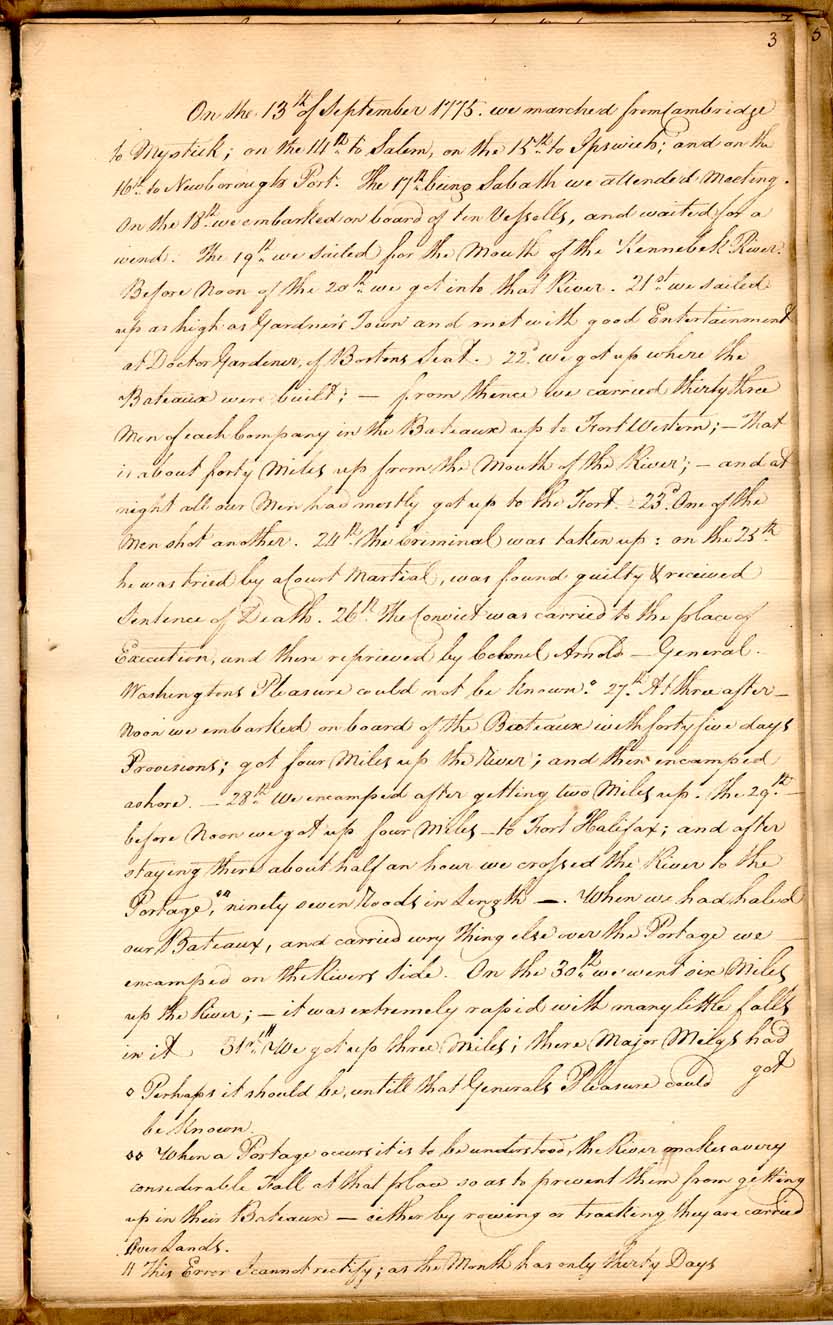 3
5
On the 13th of September 1775. we marched from Cambridge
to Mystick; on the 14th to Salem, on the 15th to Ipswich; and on the
16th to Newborough Port. The 17th being Sabath we attended Meeting.
On the 18th we embarked on board of ten Vessells, and waited for a
wend. The 19th we sailed for the Mouth of the Kennebek River.
Before Noon of the 20th we got into that River. 21st we sailed
up as high as Gardner's Town and met with good Entertainment
at Doctor Gardener, of Bostons Seat. 22d we got up where the
Bateaux were built; — from thence we carried thirty three
Men of each Company in the Bateaux up to Fort Western; — That
is about forty Miles up from the Mouth of the River; — and at
night all our Men had mostly got up to the Fort. 23d. One of the
Men shot another. 24th. The Criminal was taken up: on the 25th
he was tried by a Court Martial, was found guilty & received
Sentence of Death. 26th The Convict was carried to the place of
Execution, and there reprieved by Colonel Arnold — General
Washingtons Pleasure could not be known.° 27th At three after-
Noon we embarked on board of the Bateaux with forty five days
Provisions; got four Miles up the River; and then encamped
ashore. — 28th We encamped after getting two Miles up. The 29th —
before Noon we got up four Miles — to Fort Halifax; and after
staying there about half an hour we crossed the River to the
Portage,°° ninely seven Roods in Length —. When we had haled
our Bateaux, and carried evry Thing else over the Portage we —
encamped on the Rivers Side. On the 30th we went six Miles
up the River; — it was extremely rapid with many little falls
in it 31st" We got up three Miles; there Major Meigs had
got
° Perhaps it should be, untill that Generals Pleasure could
be known.
°° When a Portage occurs it is to be understood, the River makes a very
considerable Fall at that place so as to prevent them from getting
up in their Bateaux — either by rowing or tracking they are carried
Over Lands.
" This Error I cannot rectify; as the Month has only thirty Days